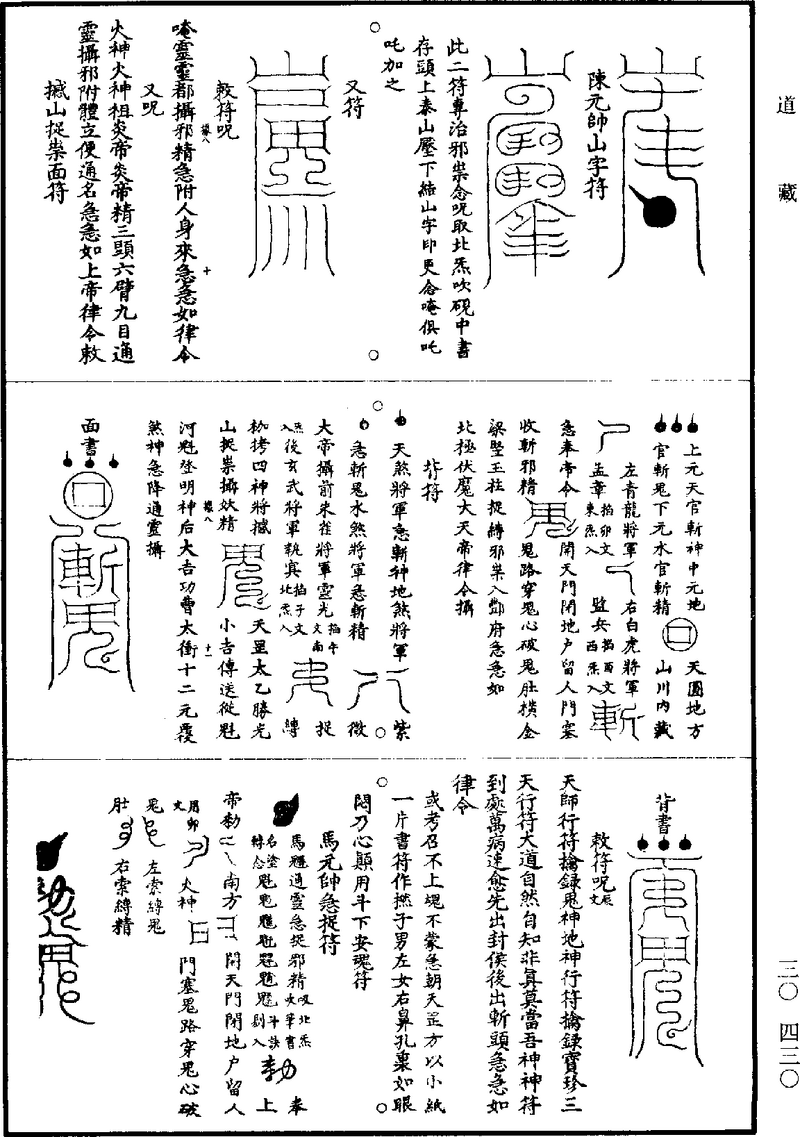 道藏
三〇 四三〇
陳元帥山字符
此二符專治邪祟念呪取北炁吹硯中書
存頭上泰山壓下結山字印更念唵俱吒
吒加之
又符
敕符呪
唵靈靈都攝邪精急附人身來急急如律令
又呪
火神火神祖炎帝炎帝精三頭六臂九目通
靈攝邪附體立便通名急急如上帝律令敕
撼山捉祟面符
上元天官斬神中元地 天圓地方
官斬鬼下元水官斬精 山川內藏
左青龍將軍 右白虎將軍
孟章 掐卯文東炁入 監兵 掐酉文西炁入 斬
急奉帝令 開天門閉地户留人門塞
收斬邪精 鬼路穿鬼心破鬼肚橫金
梁竪玉柱捉縛邪祟入酆府急急如
北極伏魔大天帝律令攝
背符
天煞將軍急斬神地煞將軍 紫
急斬鬼水煞將軍急斬精 微
大帝攝前朱雀將軍靈光 掐午文南 捉
炁入後玄武將軍執真 掐子文北炁入 縛
枷拷四神將撼
山捉祟攝妖精 天罡太乙勝光
小吉傳送從魁
河魁登明神后大吉功曹太衝十二元覆
煞神急降通靈攝
面書
斬鬼
背書
敕符呪 辰文
天師行符擒録鬼神地神行符擒録寶珍三
天行符大道自然自知非真莫當吾神神符
到處萬病速愈先出封侯後出斬頭急急如
律令
或考召不上塊不蒙急朝天罡方以小紙
一片書符作撚子男左女右鼻孔裏如眼
悶乃心顛用斗下安魂符
馬元帥急捉符
馬 通靈急捉邪精 吸北炁 奉
勅 上
帝勅 南方 開天門閉地户留人
用卯文 火神 門塞鬼路穿鬼心破
鬼 左索縛鬼
肚 右索縛精